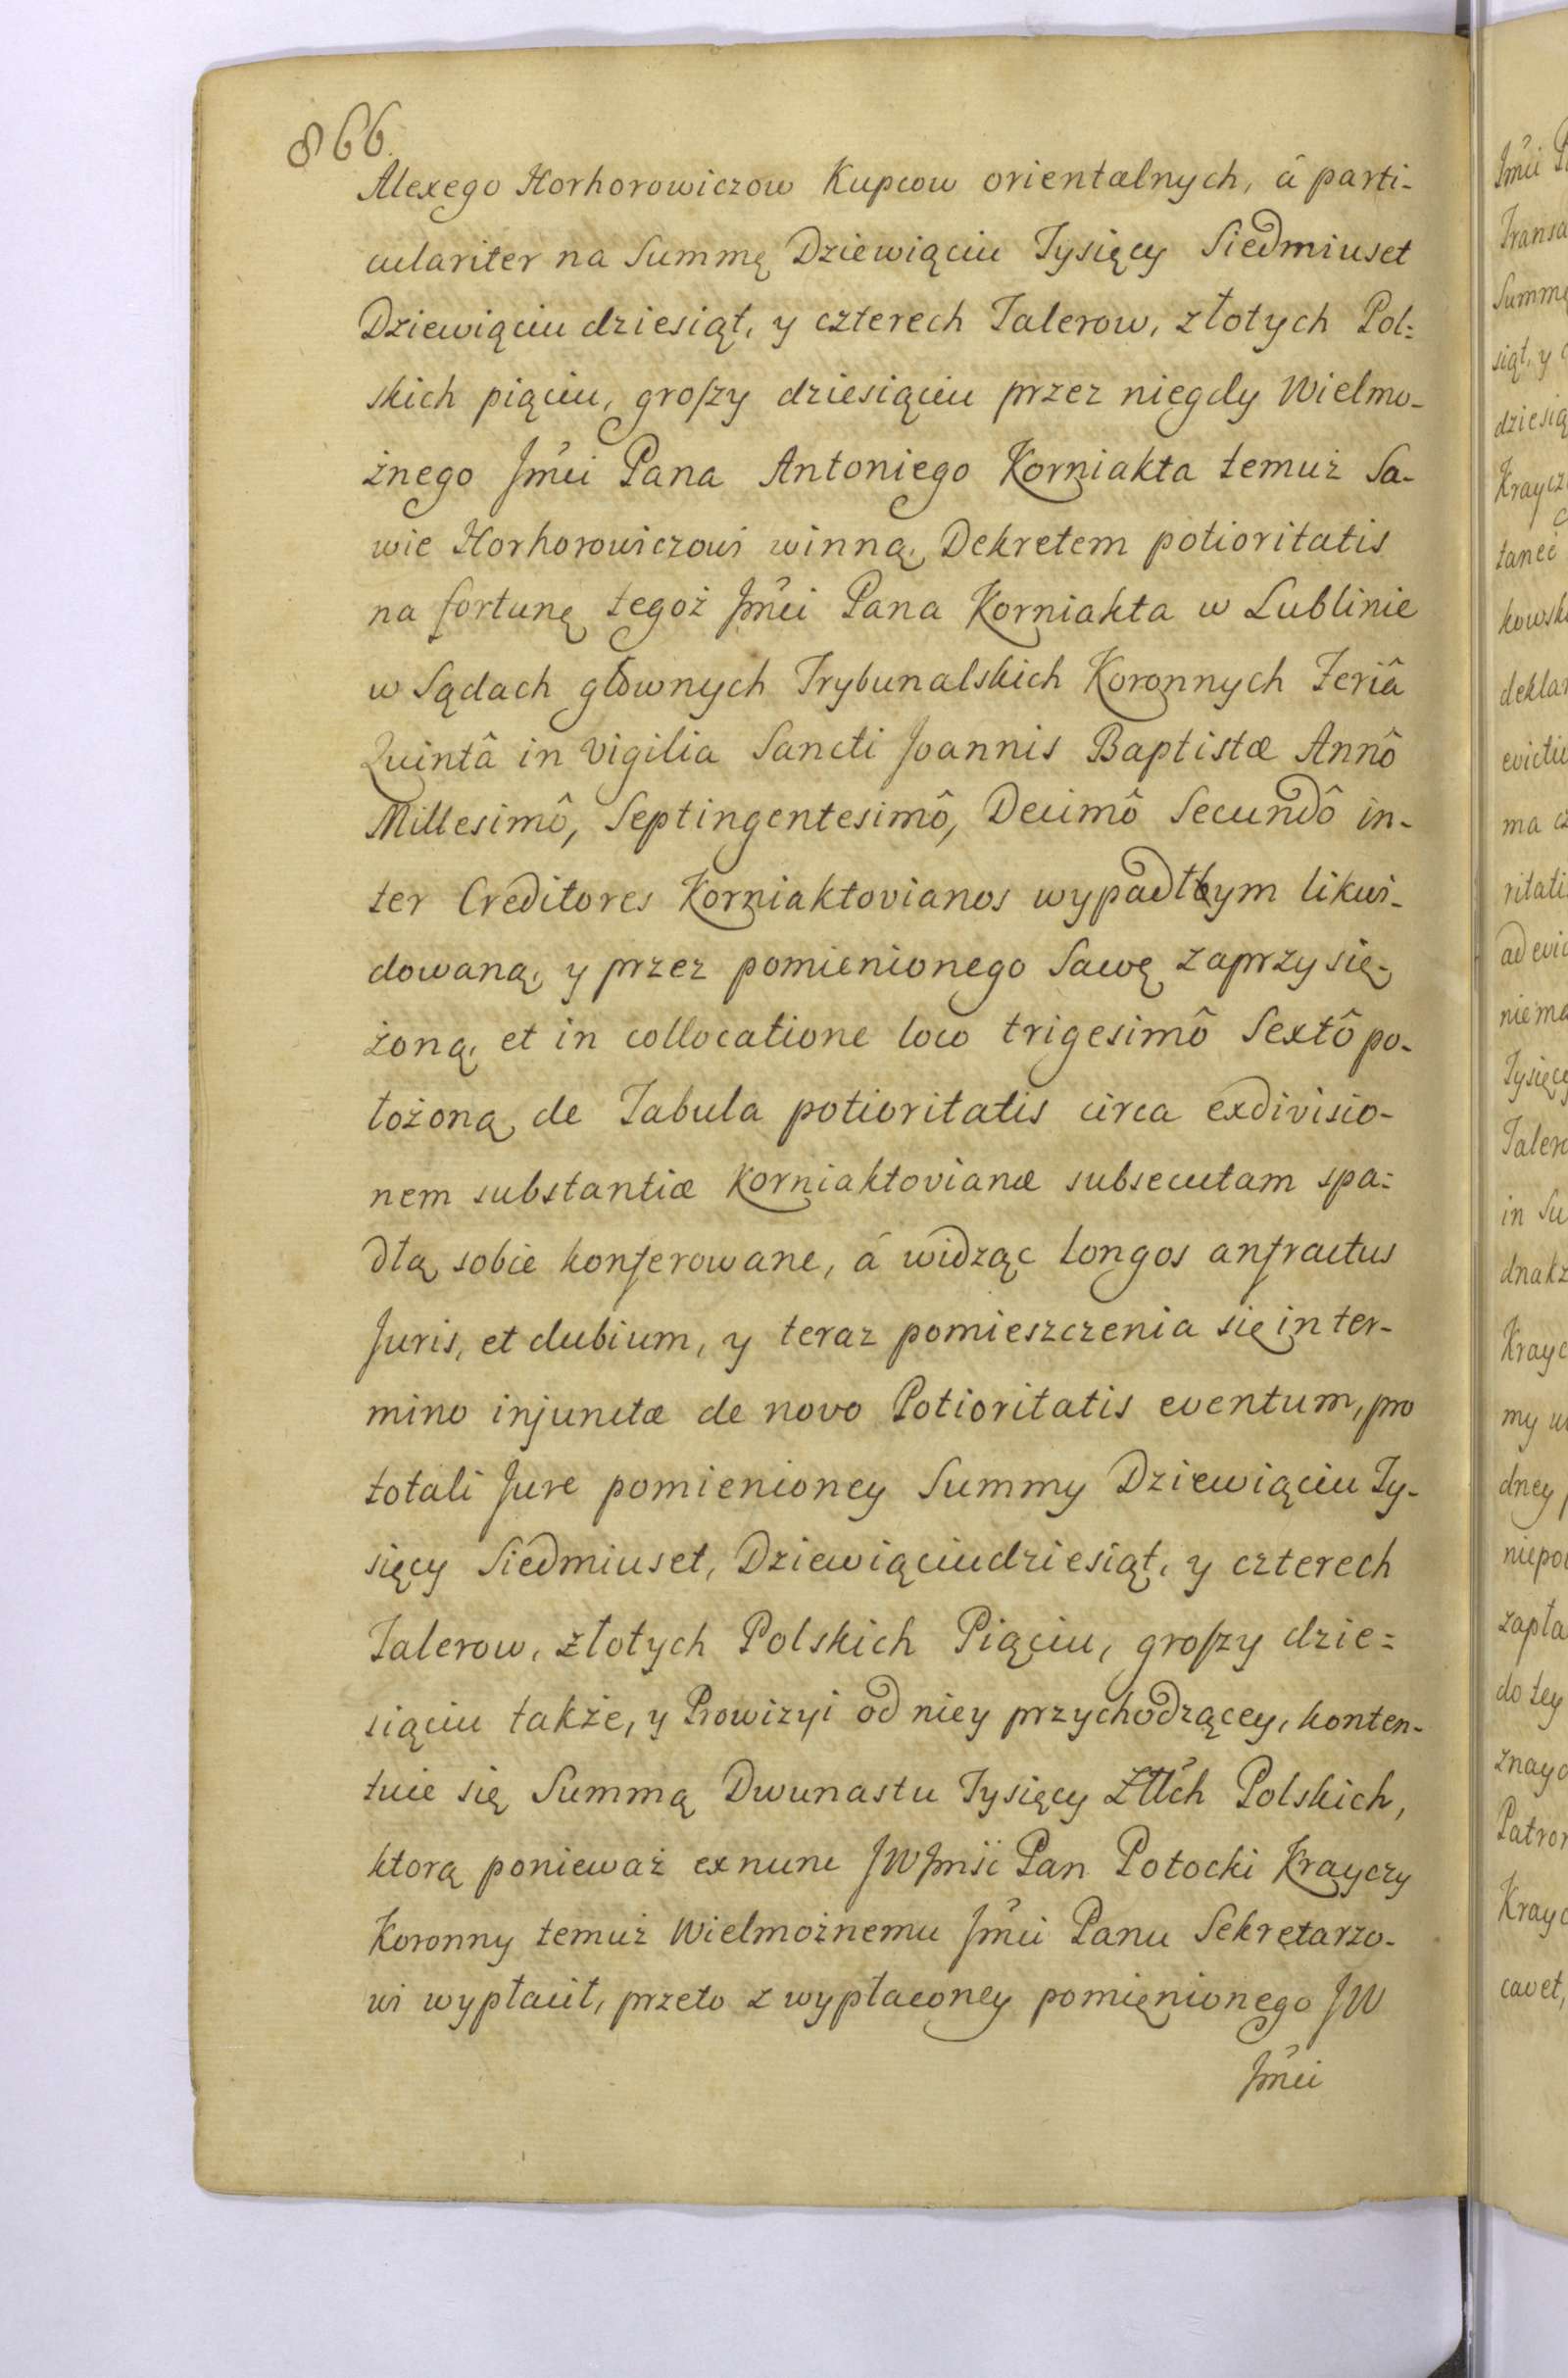 866.
Alexego Horhorowiczow Kupcow orientalnych, â parti-
culariter na Summę Dziewiąciu Tysięcy Siedmiuset
Dziewiąciu dziesiąt, y czterech Talerow, złotych Pol=
skich piąciu, groszy dziesiąciu przez niegdy Wielmo-
żnego Jmći Pana Antoniego Korniakta temuż Sa-
wie Horhorowiczowi winną, Dekretem potioritatis
na fortunę tegoż Jmći Pana Korniakta w Lublinie
w Sądach głownych Trybunalskich Koronnych Feriâ
Quintâ in Vigilia Sancti Joannis Baptistæ Annô
Millesimô, Septingentesimô, Decimô Secundô in-
ter Creditores Korniaktovianos wypadłym likwi-
dowaną, y przez pomienionego Sawę zaprzysię-
żoną, et in collocatione loco trigesimô Sextô po-
łożoną, de Tabula potioritatis circa exdivisio-
nem substantiæ Korniaktovianæ subsecutam spa=
dłą sobie konferowane, á widząc longos anfractus
Juris, et dubium, y teraz pomieszczenia się in ter-
mino injunctæ de novo Potioritatis eventum, pro
totali Jure pomienioney Summy Dziewiąciu Ty-
sięcy Siedmiuset, Dziewiąciudziesiąt, y czterech
Talerow, złotych Polskich Piąciu, groszy dzie=
siąciu także, y Prowizyi od niey przychodzącey, konten-
tuie się Summą Dwunastu Tysięcy Złłch Polskich,
ktorą ponieważ ex nunc JW Jmśi Pan Potocki Krayczy
Koronny temuż Wielmożnemu Jmći Panu Sekretarzo-
wi wypłacił, przeto z wypłaconey pomienionego JW
Jmći